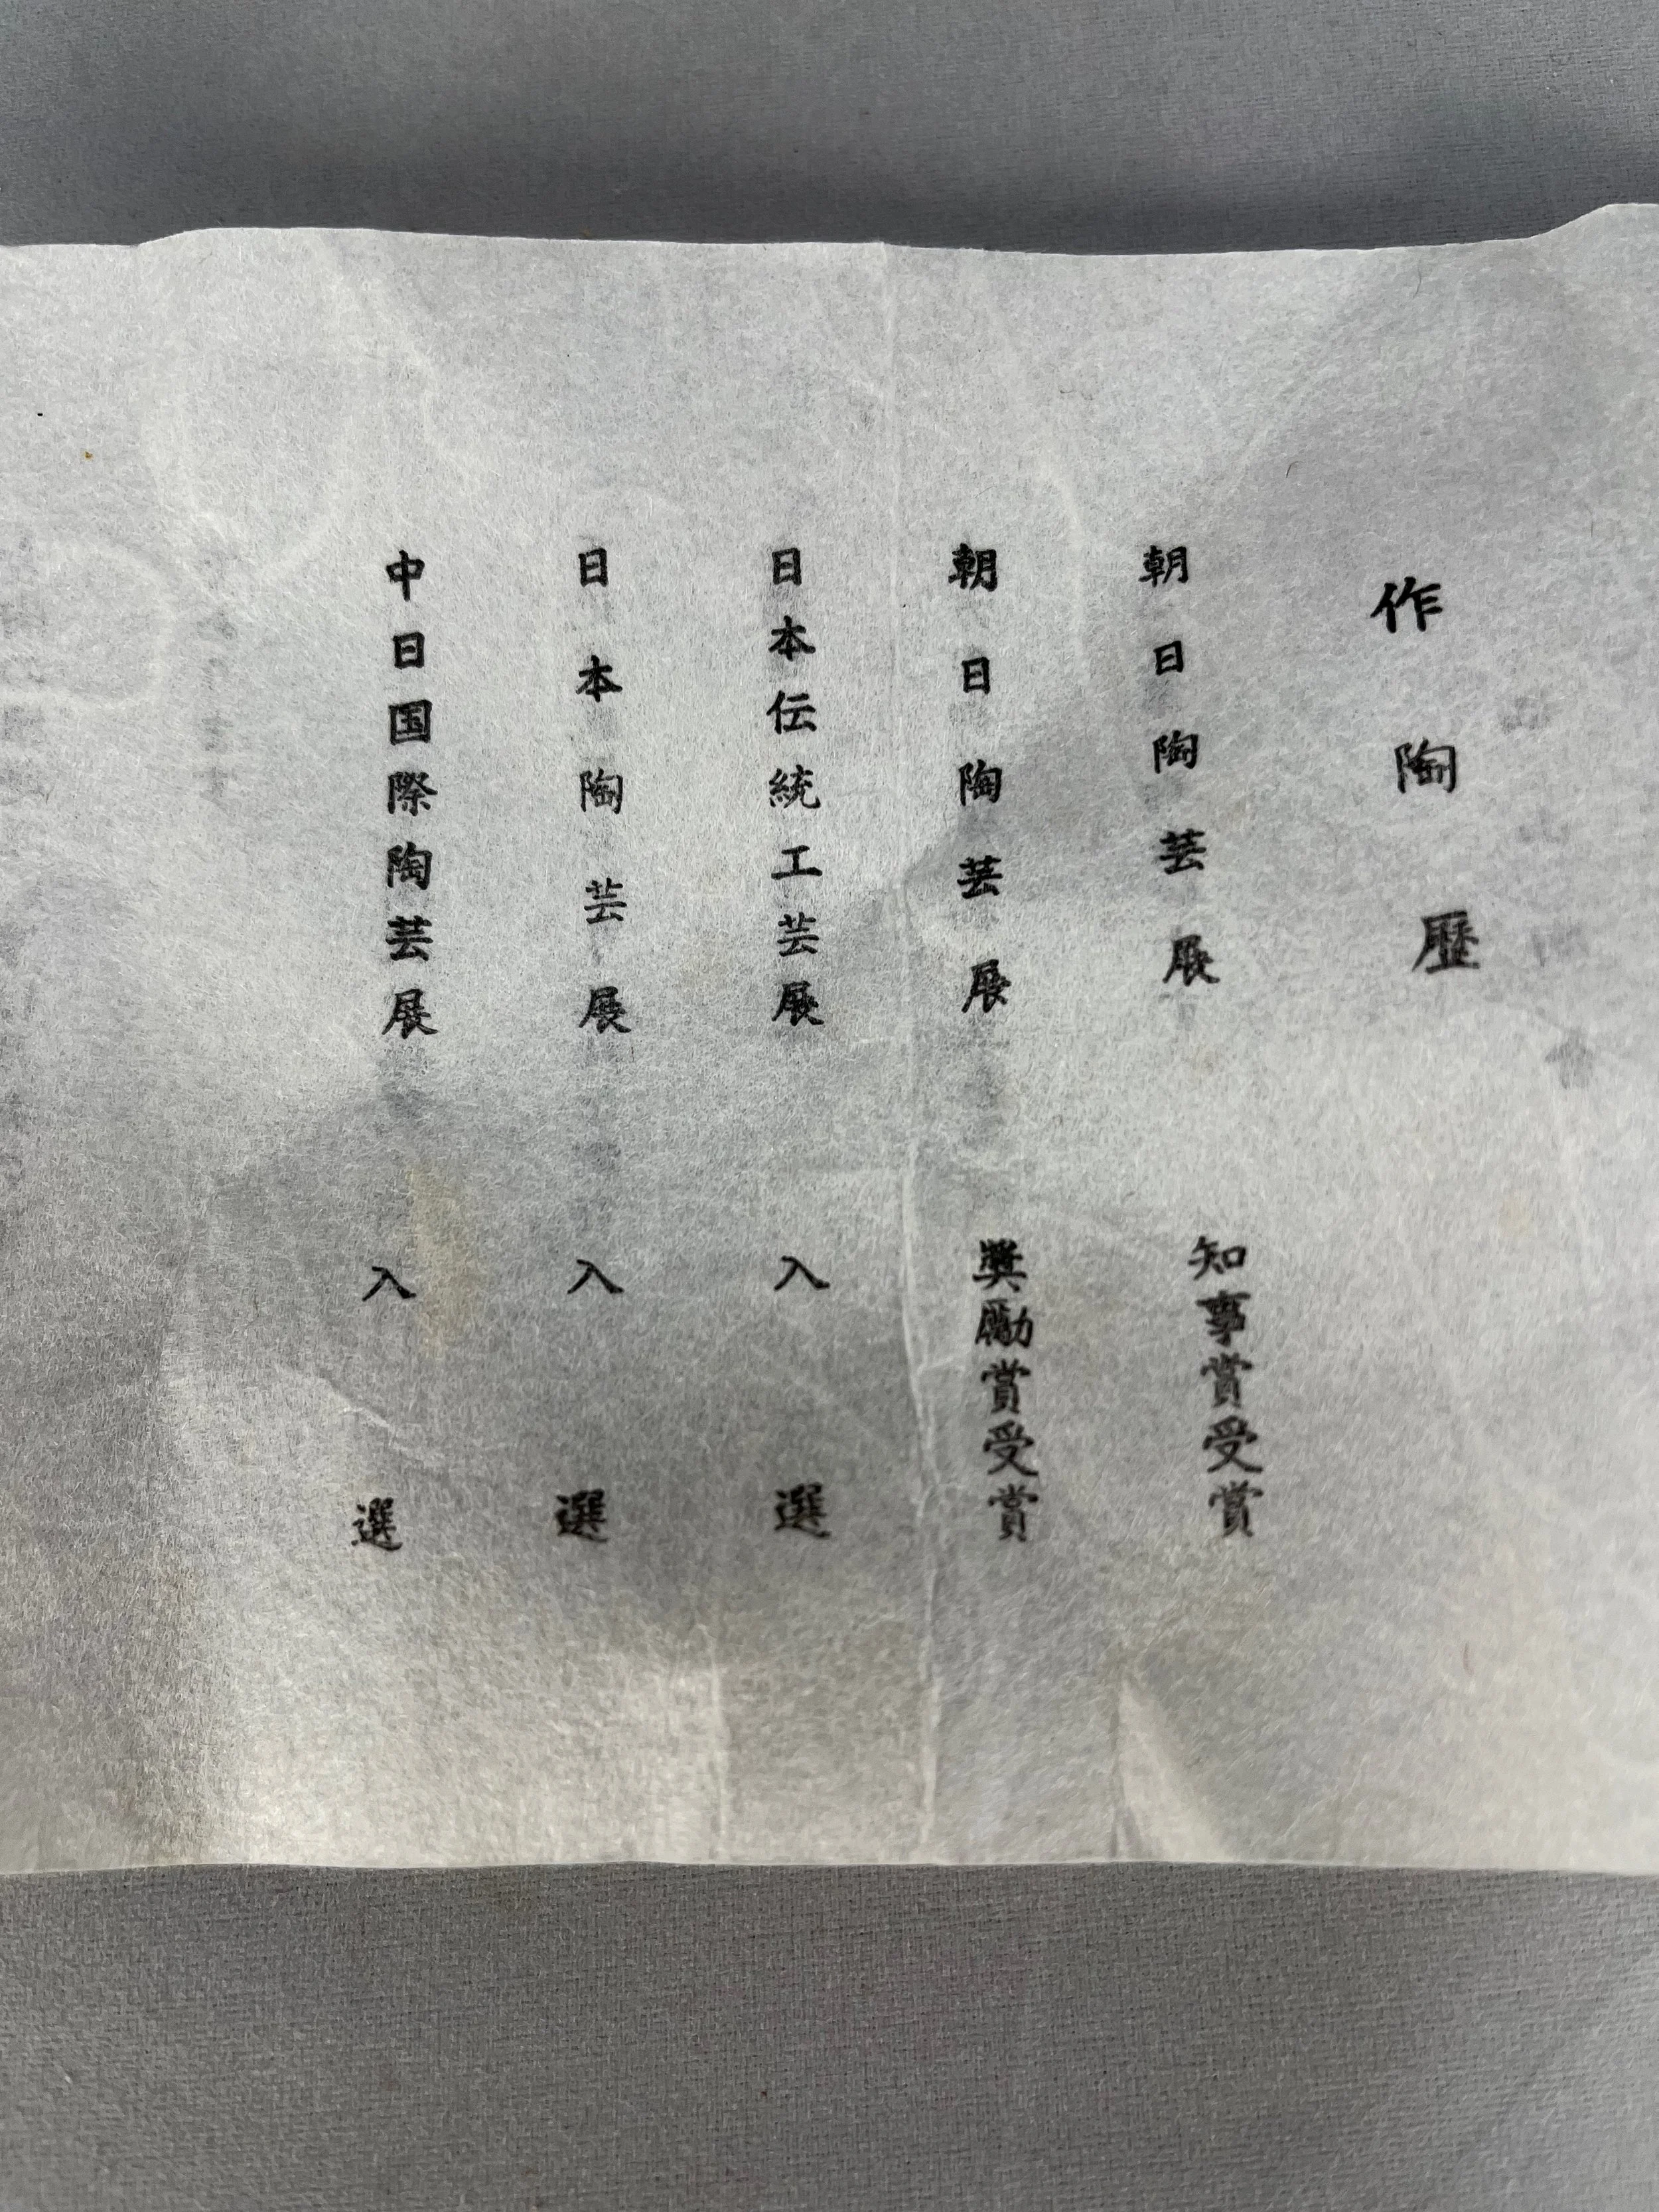 作陶歴
朝日陶芸展 知事賞受賞
朝日陶芸展 奨励賞受賞
日本伝統工芸展 入選
日本陶芸展 入選
中日国際陶芸展 入選